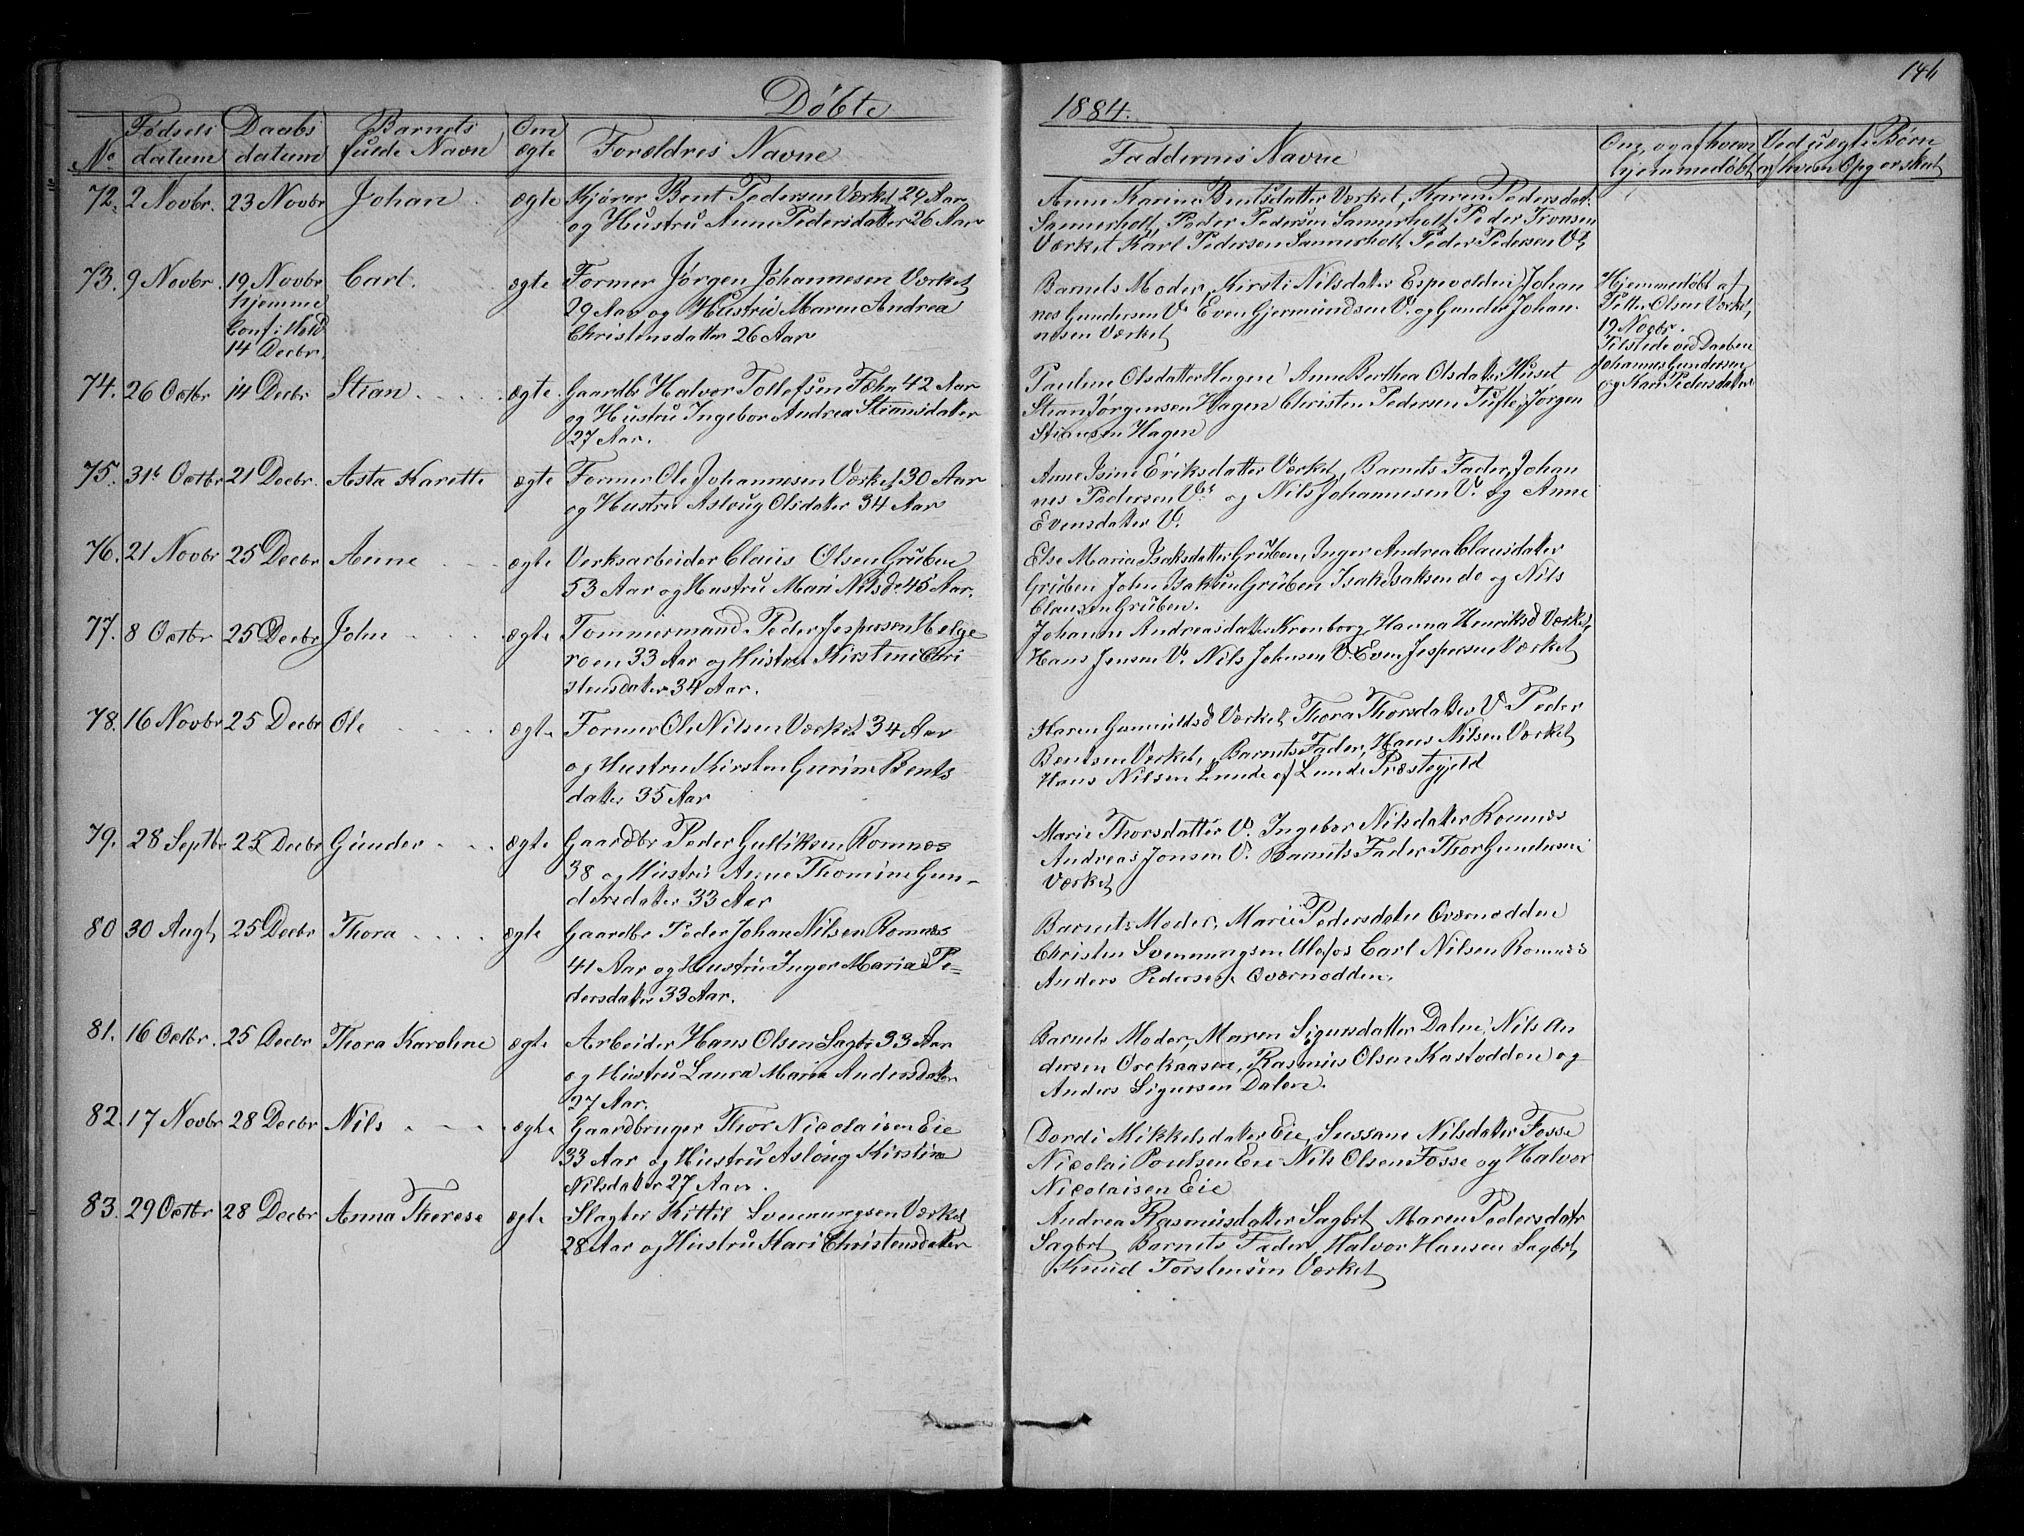 146
Døbte
1884.
No
Fødsels datum
Daabs datum
Barnets fulde Navn
Om ægte
Forældres Navne
Faddernes Navne
Om og af hvem hjemmedøbt
Ved uægte Børn af hvem Opg er skeet
72. 2 Novbr. 23 Novbr Johan ægte Kjører Bent Pedersen Værket 29 Aar
og Hustru Anne Pedersdatter 26 Aar
Anne Karine Bentsdatter Værket, Karen Pedersdat.
Sannerholt, Peder Pedersen Sannerholt Peder Tronsen
Værket Karl Pedersen Sannerholt Peder Pedersen V.
73. 9 Novbr. 19 Novbr Carl. ægte Former Jørgen Johannesen Værket
hjemme
Conf. i Held
14 Decbr.
29 Aar og Hustru Maren Andrea
Christensdatter 26 Aar
Barnets Moder, Kirsti Nilsdatter Espevolden Johan
nes Gundersen V. Even Gjermundsen V. og Gunder Johan
nesen Værket
Hjemmedøbt af
Petter Olsen Værket,
19 Novbr.
Tilstede ved Daaben
Johannes Gundersen
og Kari Pedersdatter
74. 26 Octbr 14 Decbr Stian ægte Gaardbr Halvor Tollefsen Fæhn 42 Aar
og Hustru Ingebor Andrea Stiansdatter
27 Aar.
Pauline Olsdatter Hagen Anne Berthea Olsdatter Huset
Stian Jørgensen Hagen Christen Pedersen Tufte, Jørgen
Stiansen Hagen
75. 31te Octbr 21 Decbr. Asta Karette ægte Former Ole Johannesen Værket 30 Aar
og Hustru Asloug Olsdatter 34 Aar
Anne Isine Eriksdatter Værket, Barnets Fader, Johan
nes Pedersen V. og Nils Johannesen V. og Anne
Evensdatter V.
76. 21 Novbr 25 Decbr Anne ægte Verksarbeider Claus Olsen Gruben
53 Aar og Hustru Mari Nilsd. 45 Aar.
Else Maria Isaksdatter Gruben, Inger Andrea Clausdatter
Gruben John Isaksen Gruben Isak Isaksen do og Nils
Clausen Gruben.
77. 8 Octbr 25 Decbr John ægte Tømmermand Peder Jespersen Helge
roen 33 Aar og Hustru Kirstine Chri
stensdatter 34 Aar.
Johanne Andreasdatter Kronborg, Hanna Henriksd Værket,
Hans Jensen V. Nils Johnsen V. Even Jespersen Værket
78. 16 Novbr 25 Decbr Ole ægte Former Ole Nilsen Værket 34 Aar
og Hustru Kirsten Gurine Bents
datter 35 Aar
Karen Gunnildsd Værket Thora Thorsdatter V. Peder
Bentsen Verket, Barnets Fader, Hans Nilsen Værket
Hans Nilsen Lunde af Lunde Præstegjeld
79. 28 Septbr 25 Decbr Gunder ægte Gaardbr Peder Gulliksen Romnæs
38 og Hustru Anne Thomine Gun-
dersdatter 33 Aar
Marie Thorsdatter V. Ingebor Nilsdatter Romnæs
Andreas Jonsen V. Barnets Fader Thor Gundersen
Værket
80 30 Augt, 25 Decbr Thora ægte Gaardbr Peder Johan Nilsen Romnæs
41 Aar og Hustru Inger Maria Pe=
dersdatter 33 Aar.
Barnets Moder, Marie Pedersdatter Oværnødden
Christen Svennungsen Ulefos Carl Nilsen Romnæs
Anders Pedersen Oværnødden.
81. 16 Octbr. 25 Decbr Thora Karoline ægte Arbeider Hans Olsen Sagbr. 33 Aar
og Hustru Laura Maria Andersdatter
27 Aar.
Barnets Moder, Maren Sigursdatter Dalen, Nils An
dersen Orekaasen, Rasmus Olsen Kastodden og
Anders Sigursen Dalen.
82. 17 Novbr 28 Decbr Nils ægte Gaardbruger Thor Nicolaisen Eie
33 Aar og Hustru Asloug Kirstine
Nilsdatter 27 Aar.
Dordi Mikkelsdatter Eie, Sussane Nilsdatter Fosse
Nicolai Poulsen Eie Nils Olsen Fosse og Halvor
Nicolaisen Eie
83. 29 Octbr 28 Decbr Anna Therese ægte Slagter Kittil Svennungsen Værket
28 Aar og Hustru Kari Christensdatter
Andrea Rasmusdatter Sagbrt Maren Pedersdatr
Sagbrt Barnets Fader, Halvor Hansen Sagbrt,
Knud Torstensen Værket